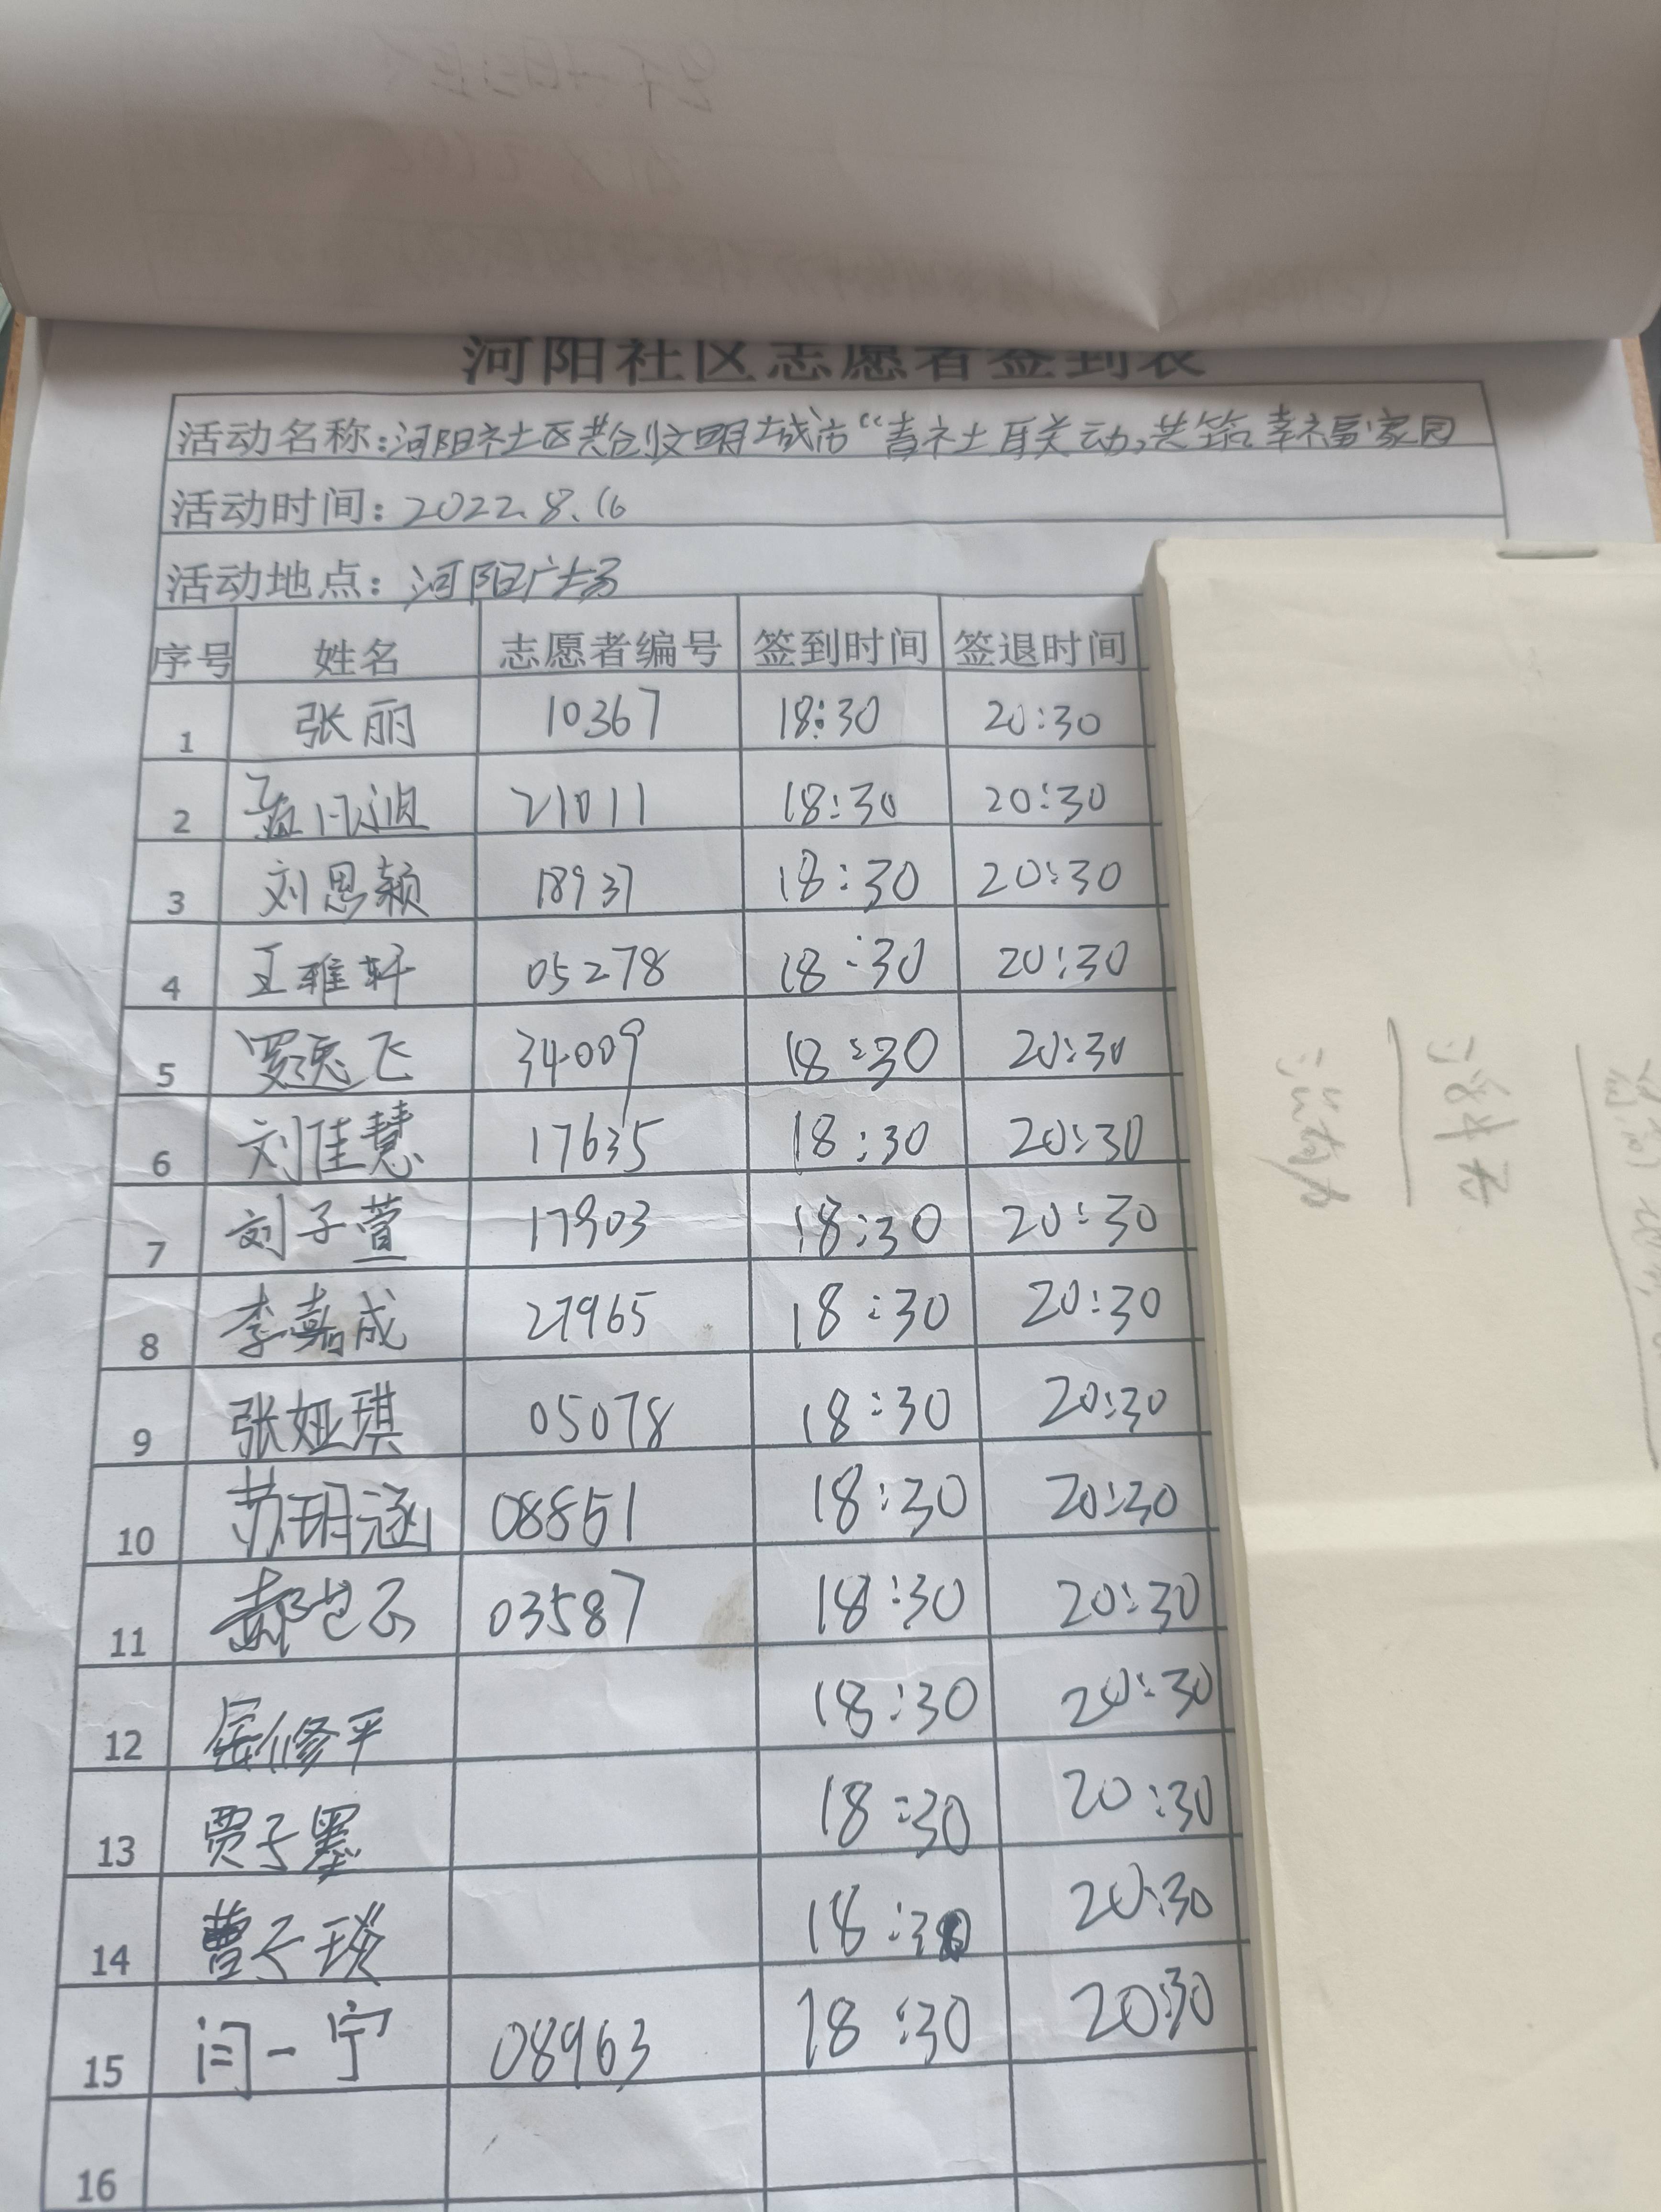 河阳社区志愿者签到表
活动名称:河阳社区共创文明城市“青社联动,共筑幸福家园
活动时间:2022.8.16
活动地点:河阳广场
序号 姓名 志愿者编号 签到时间 签退时间
1 张丽 10367 18:30 20:30
2 21011 18:30 20:30
3 刘思颖 18937 18:30 20:30
4 王雅轩 05278 18:30 20:30
5 罗逸飞 34009 18:30 20:30
6 刘佳慧 17635 18:30 20:30
7 刘子萱 17903 18:30 20:30
8 李嘉成 27965 18:30 20:30
9 张娅琪 05078 18:30 20:30
10 苏玥涵 08851 18:30 20:30
11 03587 18:30 20:30
12 屈修平 18:30 20:30
13 贾子墨 18:30 20:30
14 曹子琰 18:30 20:30
15 闫一宁 08963 18:30 20:30
16